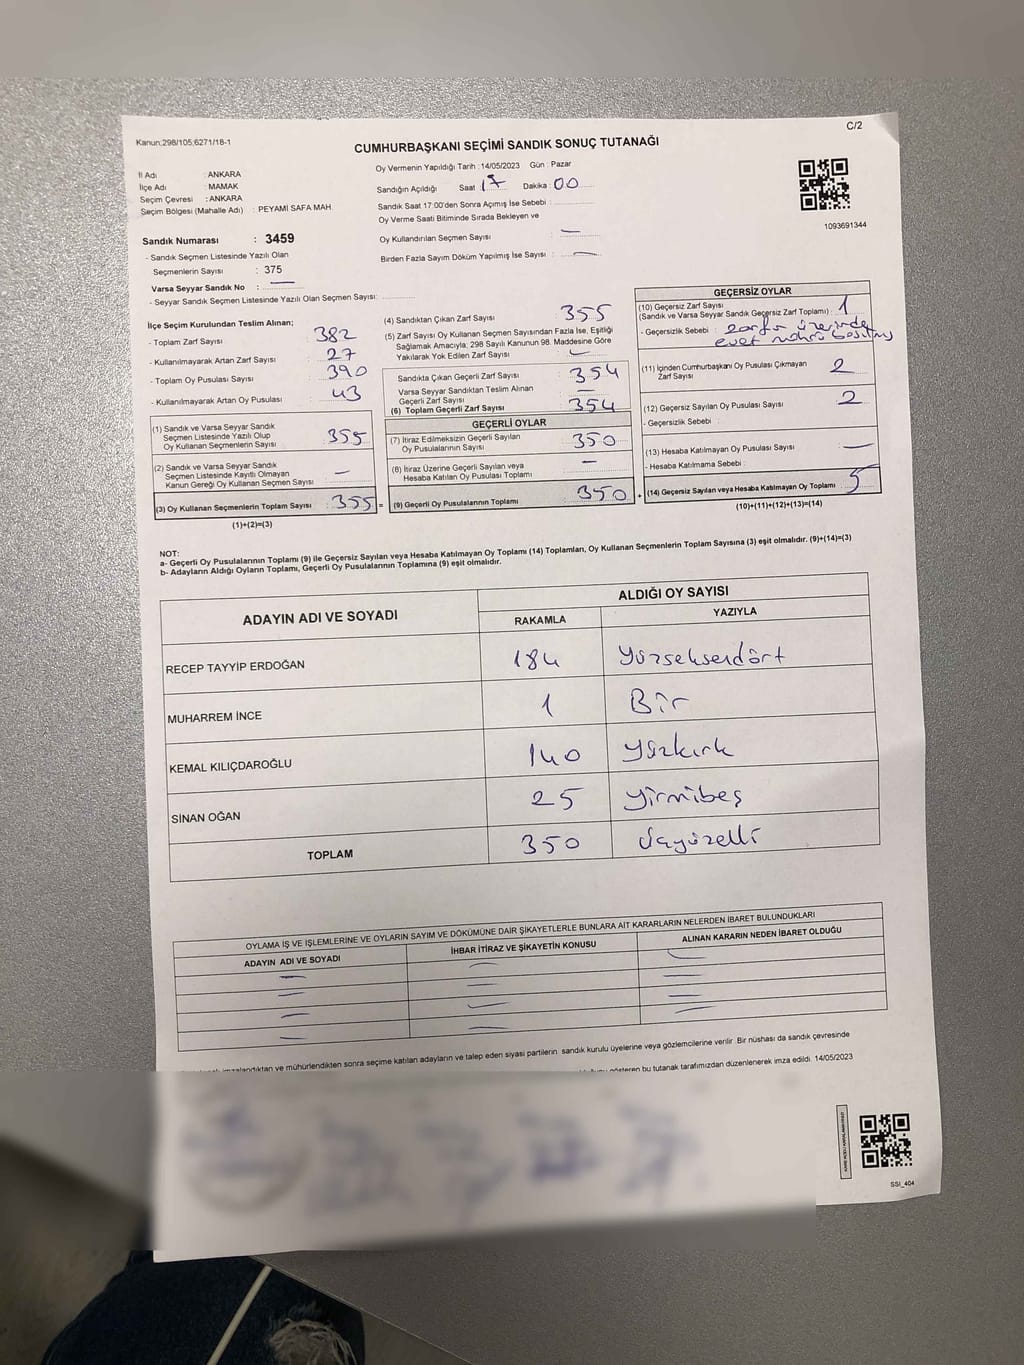 C/2
Kanun:298/105;6271/18-1
CUMHURBAŞKANI SEÇİMİ SANDIK SONUÇ TUTANAĞI
İl Adı : ANKARA
İlçe Adı : MAMAK
Seçim Çevresi : ANKARA
Seçim Bölgesi (Mahalle Adı) : PEYAMİ SAFA MAH.
Sandık Numarası : 3459
- Sandık Seçmen Listesinde Yazılı Olan
Seçmenlerin Sayısı : 375
Varsa Seyyar Sandık No : —
- Seyyar Sandık Seçmen Listesinde Yazılı Olan Seçmen Sayısı:
Oy Vermenin Yapıldığı Tarih : 14/05/2023 Gün : Pazar
Sandığın Açıldığı Saat 17 Dakika : 00
Sandık Saat 17:00'den Sonra Açımış İse Sebebi :
Oy Verme Saati Bitiminde Sırada Bekleyen ve
Oy Kullandırılan Seçmen Sayısı : —
Birden Fazla Sayım Döküm Yapılmış İse Sayısı : —
1093691344
İlçe Seçim Kurulundan Teslim Alınan;
- Toplam Zarf Sayısı : 382
- Kullanılmayarak Artan Zarf Sayısı : 27
- Toplam Oy Pusulası Sayısı : 390
- Kullanılmayarak Artan Oy Pusulası : 43
(1) Sandık ve Varsa Seyyar Sandık
Seçmen Listesinde Yazılı Olup
Oy Kullanan Seçmenlerin Sayısı : 355
(2) Sandık ve Varsa Seyyar Sandık
Seçmen Listesinde Kayıtlı Olmayan
Kanun Gereği Oy Kullanan Seçmen Sayısı : —
(3) Oy Kullanan Seçmenlerin Toplam Sayısı : 355 =
(1)+(2)=(3)
(4) Sandıktan Çıkan Zarf Sayısı : 355
(5) Zarf Sayısı Oy Kullanan Seçmen Sayısından Fazla İse, Eşitliği
Sağlamak Amacıyla, 298 Sayılı Kanunun 98. Maddesine Göre
Yakılarak Yok Edilen Zarf Sayısı : —
Sandıkta Çıkan Geçerli Zarf Sayısı : 354
Varsa Seyyar Sandıktan Teslim Alınan
Geçerli Zarf Sayısı : —
(6) Toplam Geçerli Zarf Sayısı : 354
GEÇERLİ OYLAR
(7) İtiraz Edilmeksizin Geçerli Sayılan
Oy Pusulalarının Sayısı : 350
(8) İtiraz Üzerine Geçerli Sayılan veya
Hesaba Katılan Oy Pusulası Toplamı : —
(9) Geçerli Oy Pusulalarının Toplamı : 350 +
GEÇERSİZ OYLAR
(10) Geçersiz Zarf Sayısı
(Sandık ve Varsa Seyyar Sandık Geçersiz Zarf Toplamı) : 1
- Geçersizlik Sebebi : zarfın üzerinde
evet mührü basılmış
(11) İçinden Cumhurbaşkanı Oy Pusulası Çıkmayan
Zarf Sayısı : 2
(12) Geçersiz Sayılan Oy Pusulası Sayısı : 2
- Geçersizlik Sebebi :
(13) Hesaba Katılmayan Oy Pusulası Sayısı : —
- Hesaba Katılmama Sebebi :
(14) Geçersiz Sayılan veya Hesaba Katılmayan Oy Toplamı : 5
(10)+(11)+(12)+(13)=(14)
NOT:
a- Geçerli Oy Pusulalarının Toplamı (9) ile Geçersiz Sayılan veya Hesaba Katılmayan Oy Toplamı (14) Toplamları, Oy Kullanan Seçmenlerin Toplam Sayısına (3) eşit olmalıdır. (9)+(14)=(3)
b- Adayların Aldığı Oyların Toplamı, Geçerli Oy Pusulalarının Toplamına (9) eşit olmalıdır.
ADAYIN ADI VE SOYADI
ALDIĞI OY SAYISI
RAKAMLA YAZIYLA
RECEP TAYYİP ERDOĞAN 184 Yüzseksendört
MUHARREM İNCE 1 Bir
KEMAL KILIÇDAROĞLU 140 Yüzkırk
SİNAN OĞAN 25 Yirmibeş
TOPLAM 350 üçyüzelli
OYLAMA İŞ VE İŞLEMLERİNE VE OYLARIN SAYIM VE DÖKÜMÜNE DAİR ŞİKAYETLERLE BUNLARA AİT KARARLARIN NELERDEN İBARET BULUNDUKLARI
ADAYIN ADI VE SOYADI İHBAR İTİRAZ VE ŞİKAYETİN KONUSU ALINAN KARARIN NEDEN İBARET OLDUĞU
— — —
— — —
— — —
— — —
imzalandıktan ve mühürlendikten sonra seçime katılan adayların ve talep eden siyasi partilerin sandık kurulu üyelerine veya gözlemcilerine verilir. Bir nüshası da sandık çevresinde
gösteren bu tutanak tarafımızdan düzenlenerek imza edildi. 14/05/2023
SSI_404